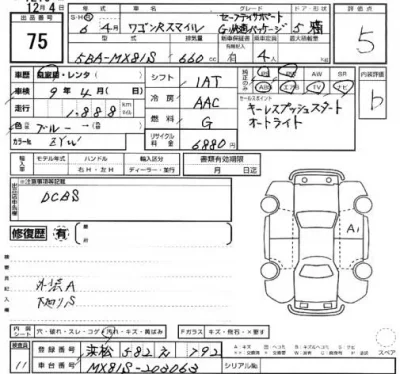 12月4日
出品番号
75
年式
車名
グレード
ドア・形状
評価点
6年4月
ワゴンRスマイル
セーフティサポート
G・快適パッケージ
5
型式
排気量
乗車定員
最大積載量
5BA-MX81S
660cc
有
4人
5
車歴
自家用・レンタ
シフト
1AT
純正のみ
PS PW AW SR
AB TV ナビ
内装評価
b
車検
9年4月
冷房
AAC
セールスポイント
キーレスプッシュスタート
オートライト
走行
1,888
km
色
ブルー
燃料
G
カラーNo.
ZYW
リサイクル料金
6880円
輸入車
モデル年式
ハンドル
右H・左H
輸入区分
ディーラー・並行
書類有効期限
月 日迄
注意事項等記載
DCBS
修復歴
有
A1
検査員記入欄
外装A
下廻りS
スペア
内装シート
穴・破れ・スレ・コゲ・汚れ・キズ・黄ばみ
Fガラス
キズ・飛石・×要す
検査員
11
登録番号
浜松 582 え 792
車台番号
MX81S-203063
シリアルNo.